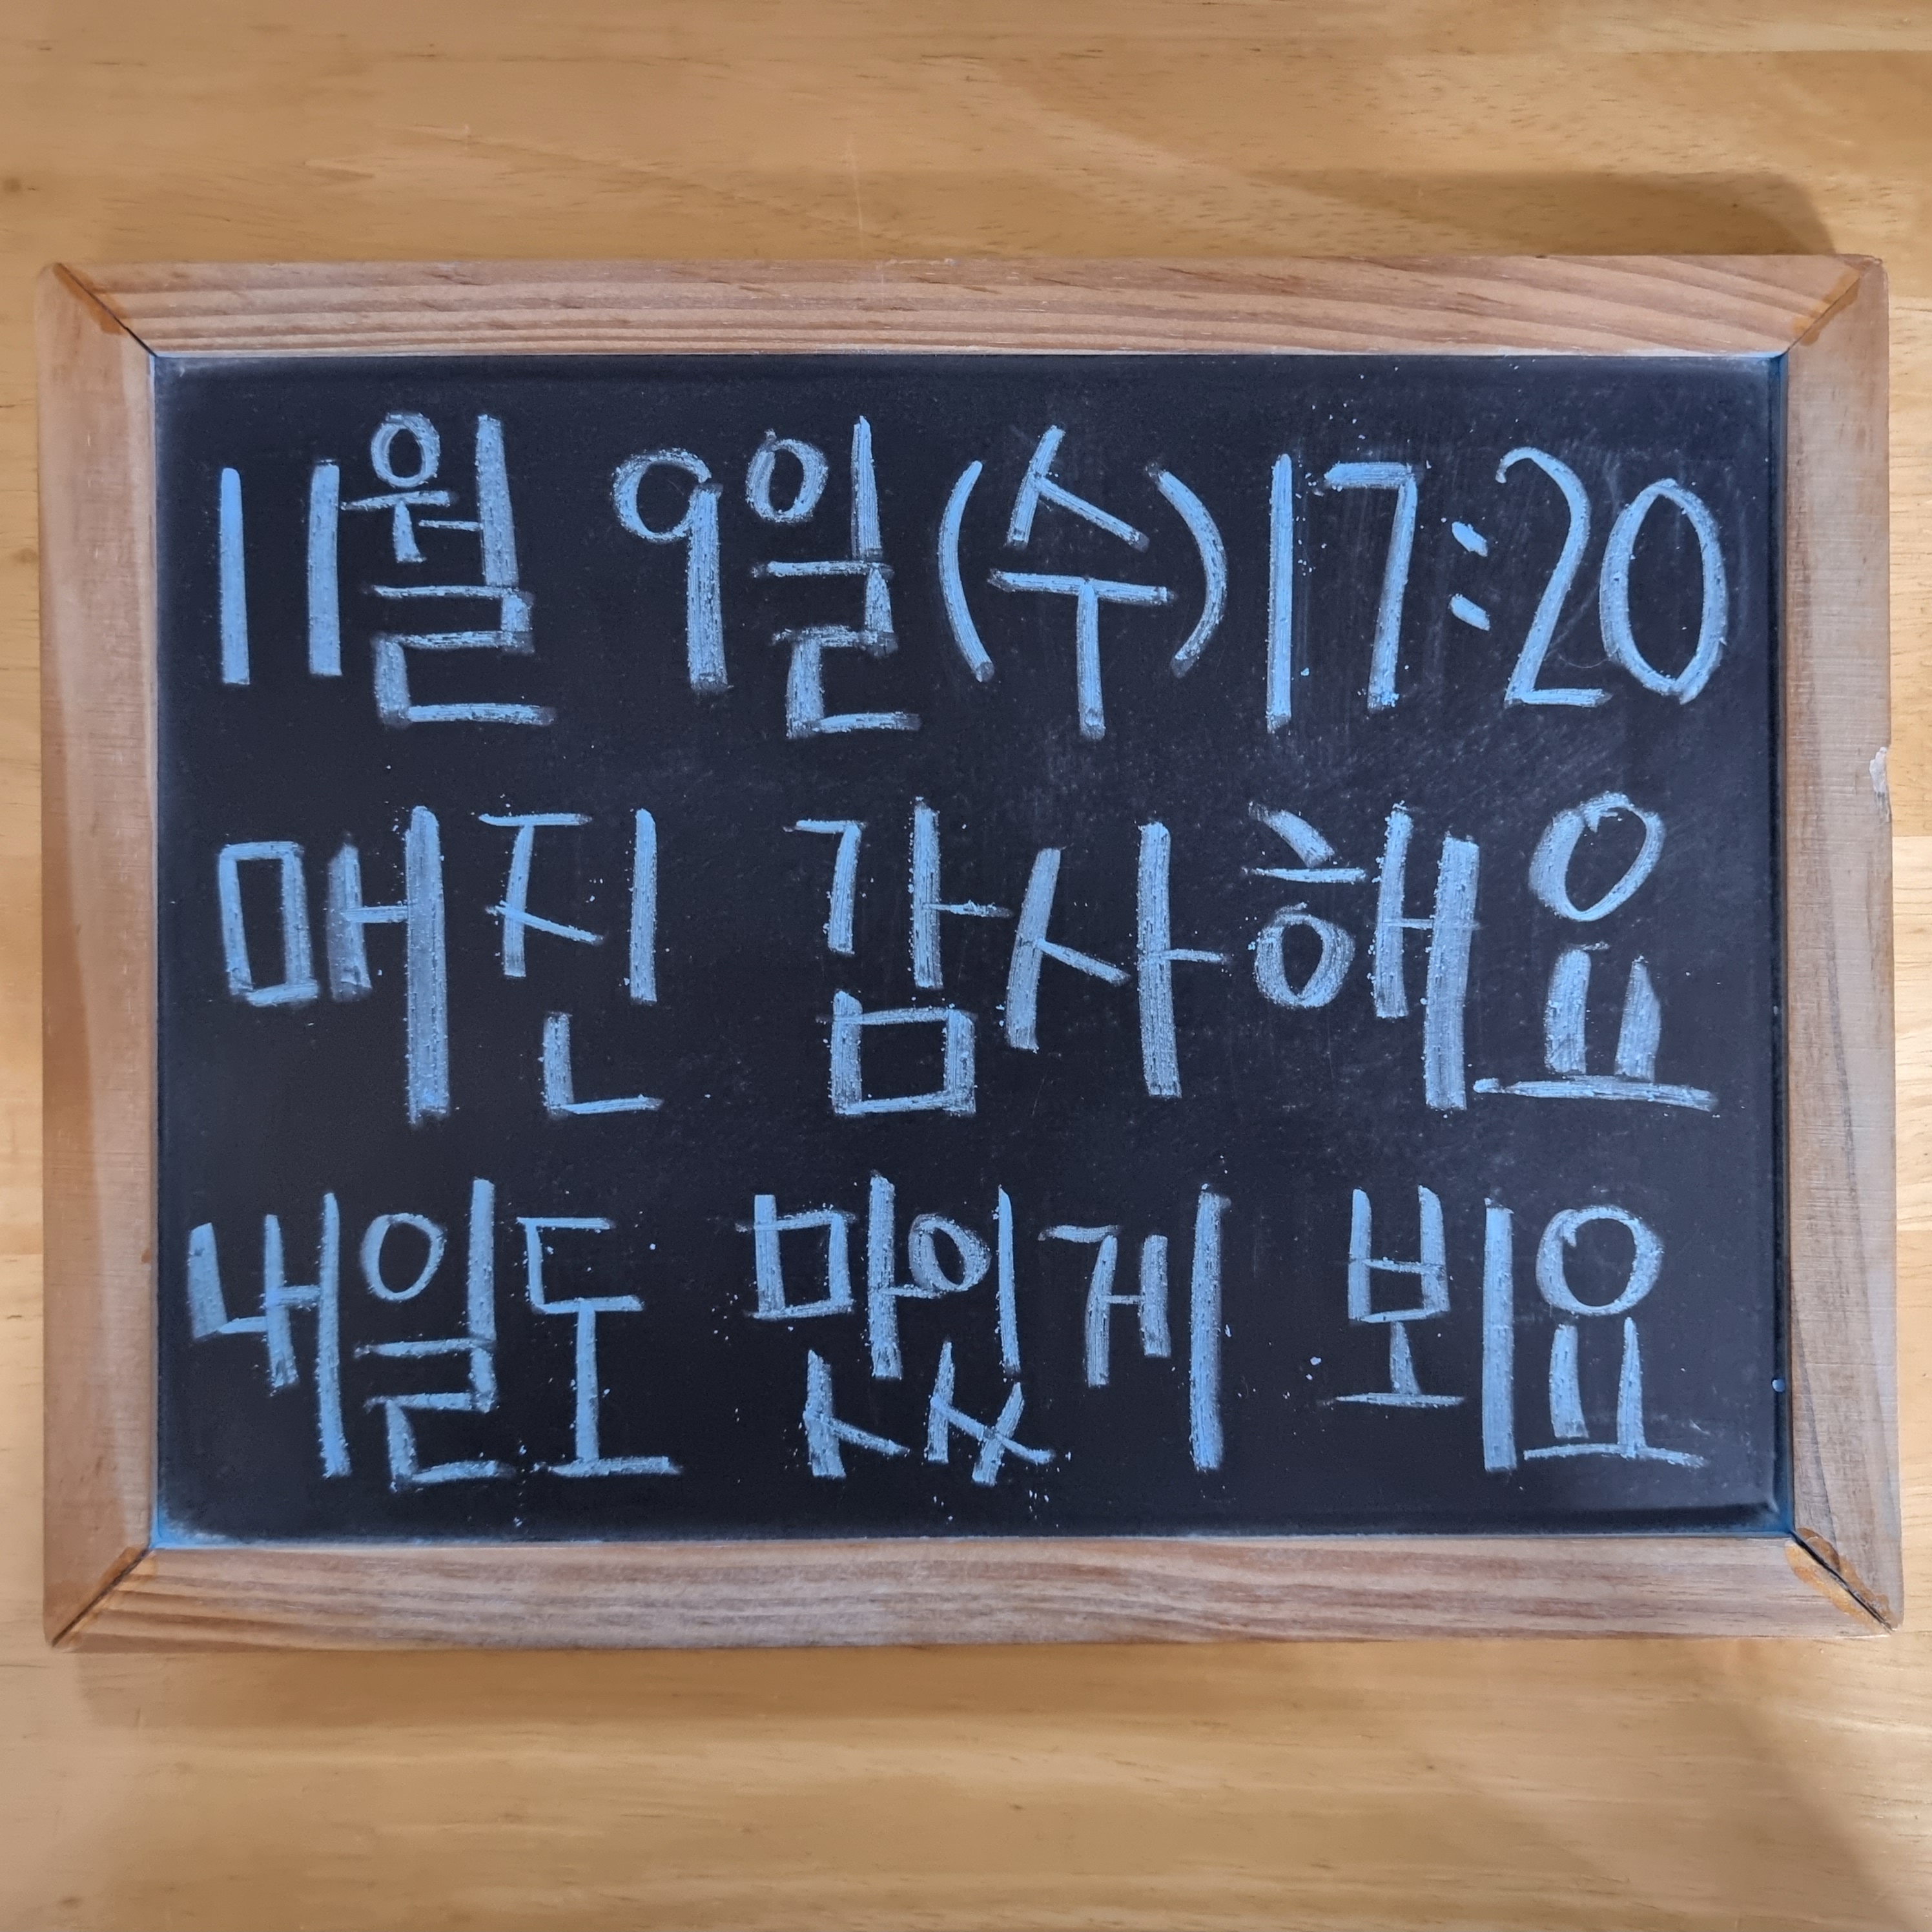 11월 9일(수)17:20
매진 감사해요
내일도 맛있게 뵈요